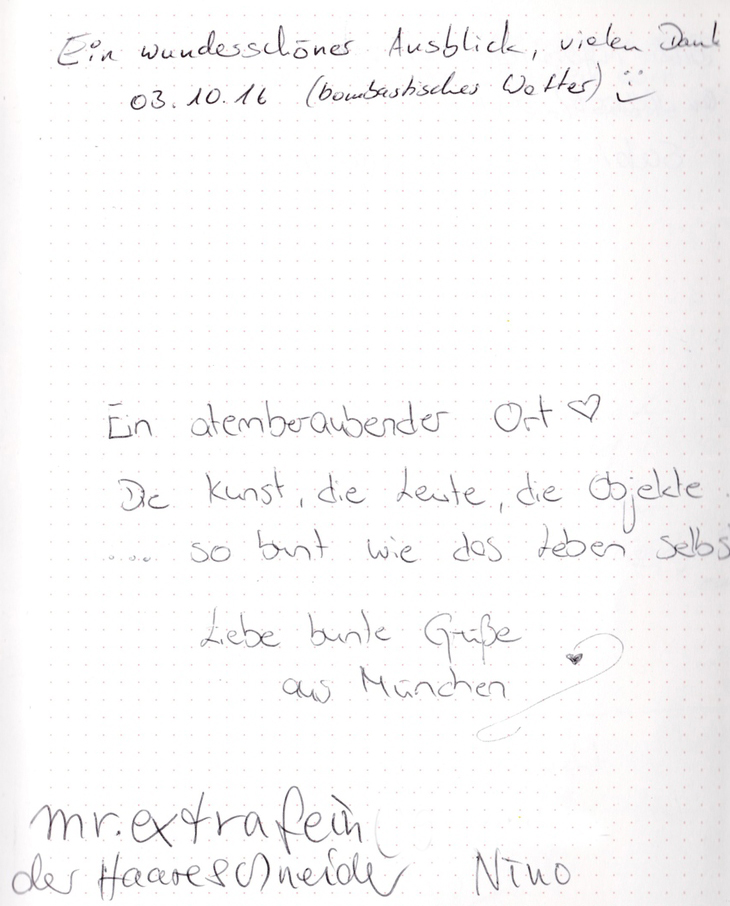 Ein wunderschöner Ausblick, vielen Dank
03.10.16 (bombastisches Wetter) :)
Ein atemberaubender Ort ♡
Die Kunst, die Leute, die Objekte
.... so bunt wie das Leben selbs
Liebe bunte Grüße
aus München
mr.extrafein
der Haareschneider Nino